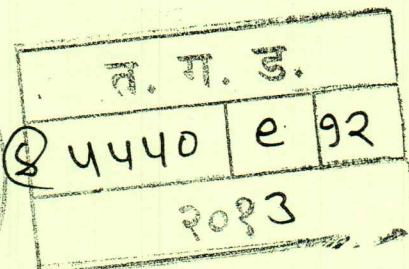 त. ग. ड.
५५५० ९ १२
२०१३